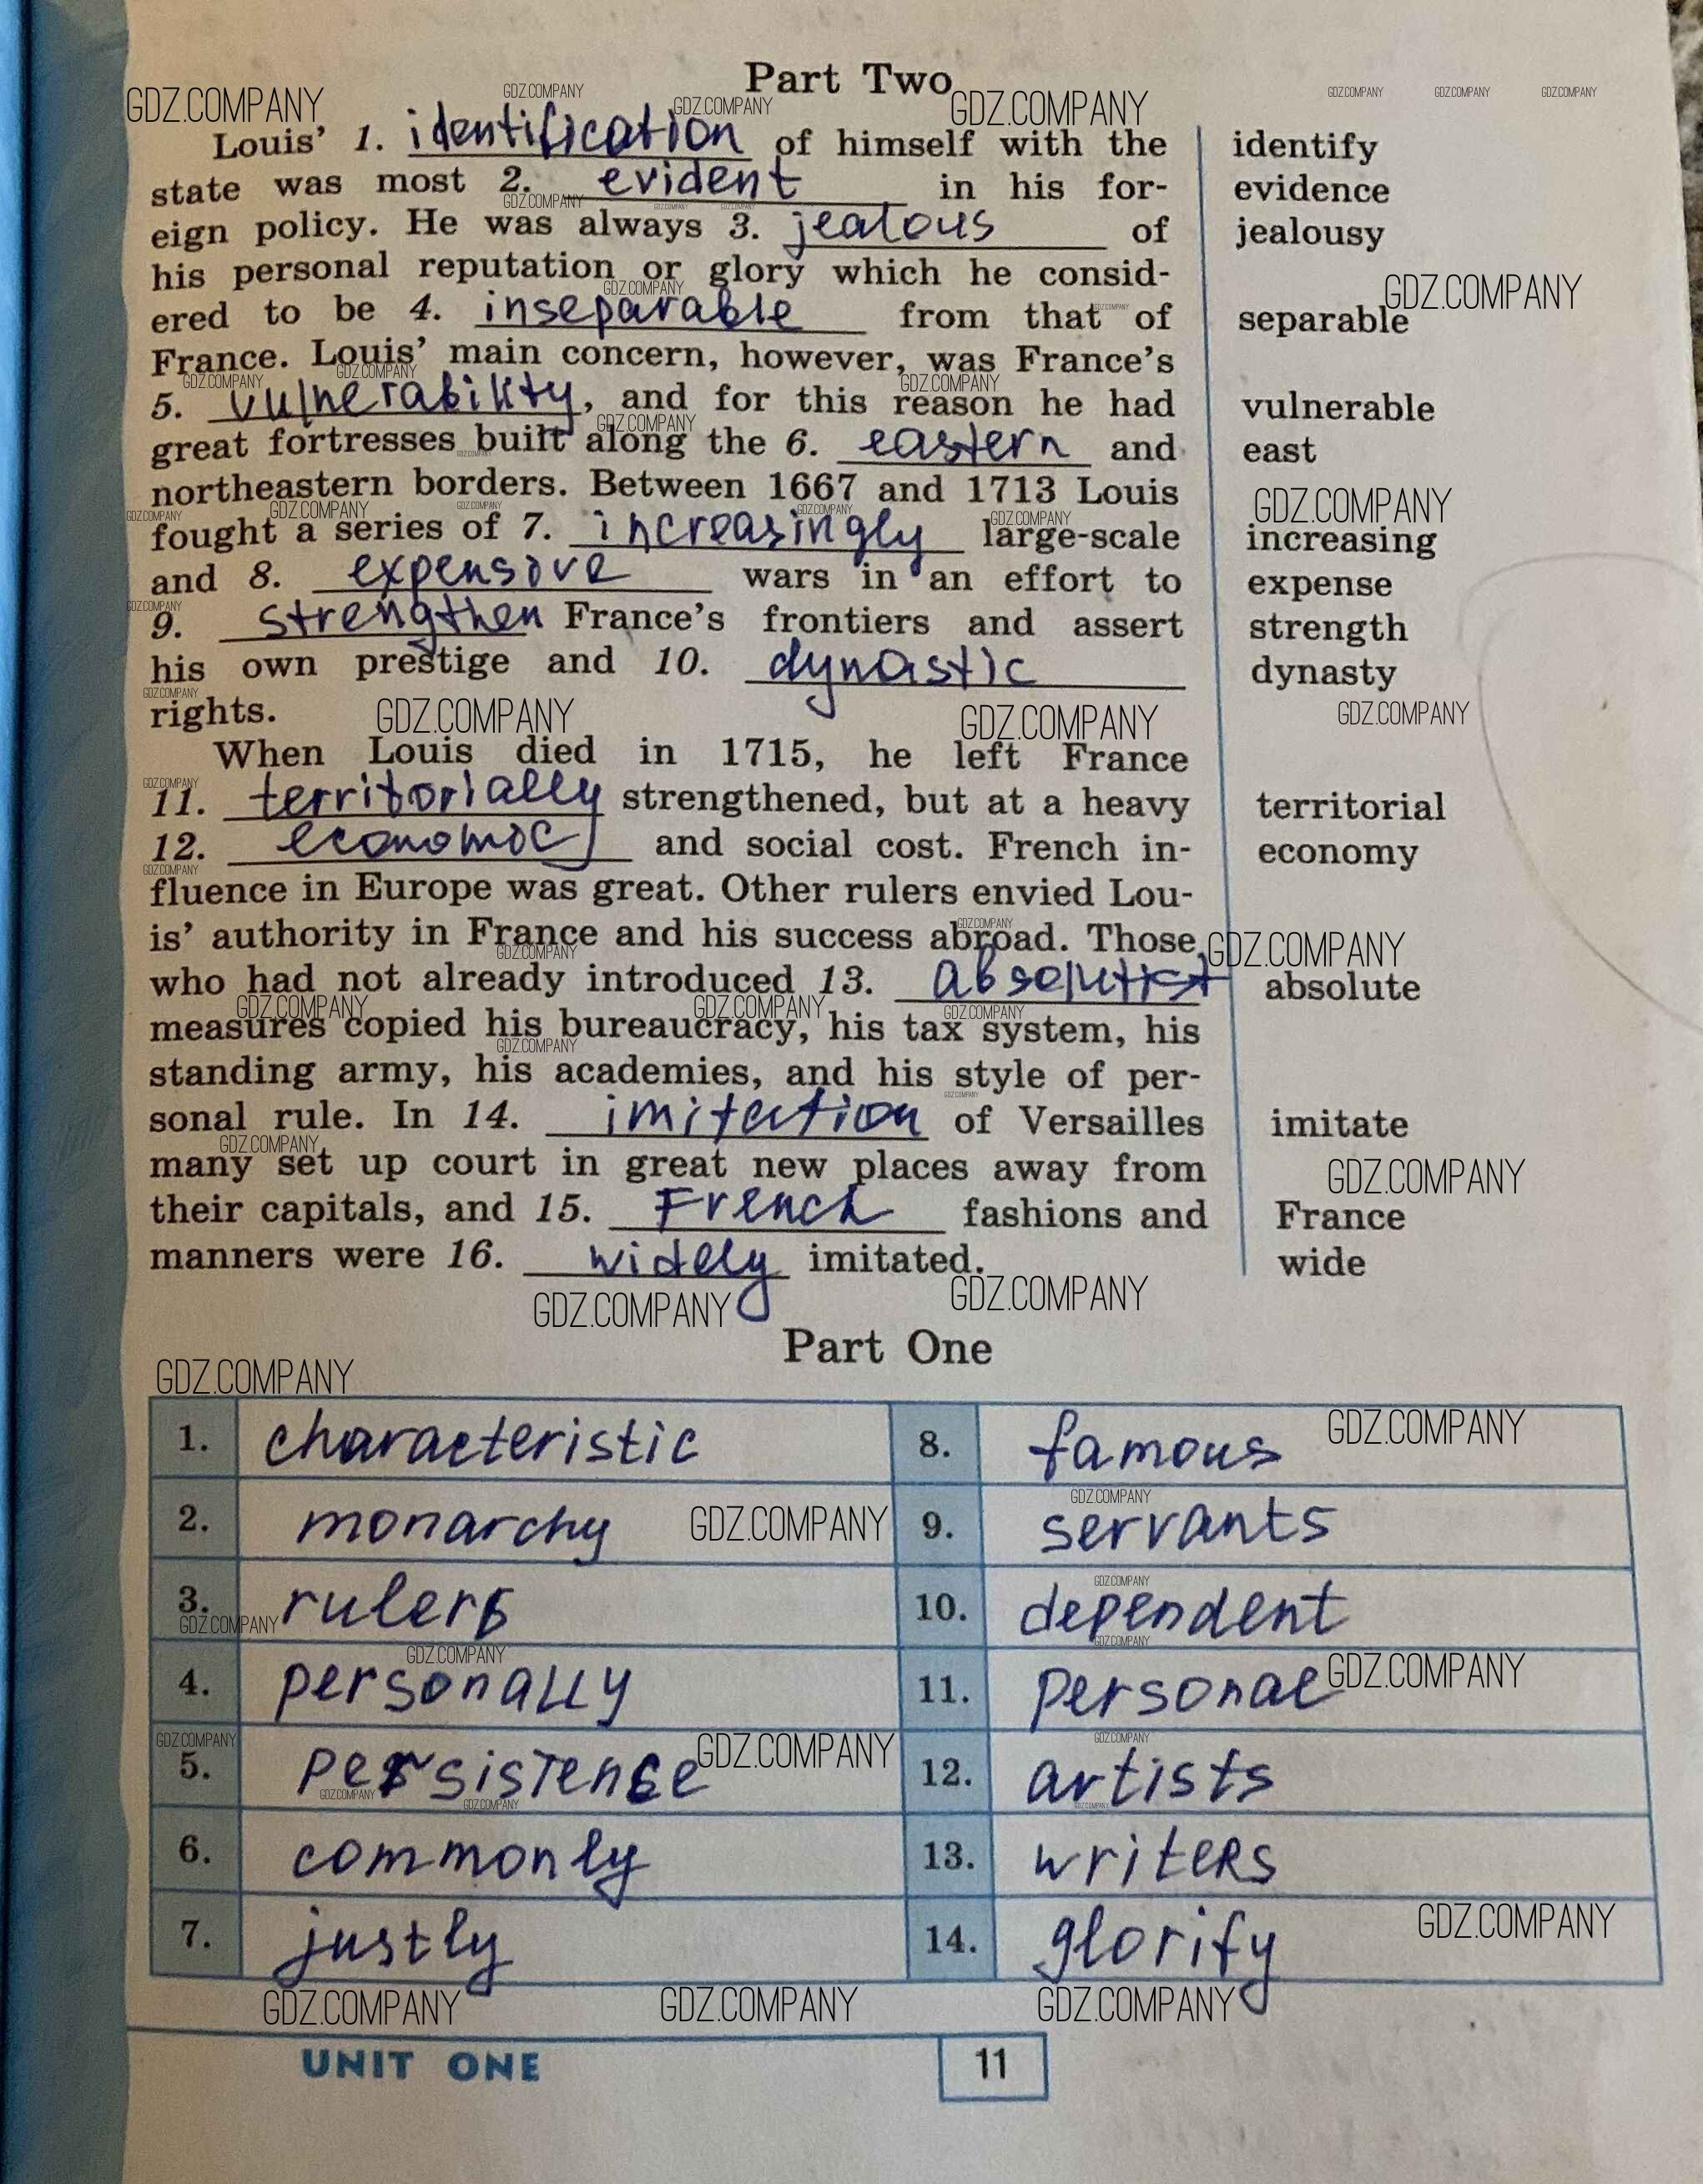 Part Two
Louis' 1. identification of himself with the | identify
state was most 2. evident in his for- | evidence
eign policy. He was always 3. jealous of | jealousy
his personal reputation or glory which he consid-
ered to be 4. inseparable from that of | separable
France. Louis' main concern, however, was France's
5. vulnerability, and for this reason he had | vulnerable
great fortresses built along the 6. eastern and | east
northeastern borders. Between 1667 and 1713 Louis
fought a series of 7. increasingly large-scale | increasing
and 8. expensive wars in an effort to | expense
9. strengthen France's frontiers and assert | strength
his own prestige and 10. dynastic | dynasty
rights.
When Louis died in 1715, he left France
11. territorially strengthened, but at a heavy | territorial
12. economic and social cost. French in- | economy
fluence in Europe was great. Other rulers envied Lou-
is' authority in France and his success abroad. Those
who had not already introduced 13. absolutist | absolute
measures copied his bureaucracy, his tax system, his
standing army, his academies, and his style of per-
sonal rule. In 14. imitation of Versailles | imitate
many set up court in great new places away from
their capitals, and 15. French fashions and | France
manners were 16. widely imitated. | wide
GDZ.COMPANY
Part One
1. characteristic 8. famous
2. monarchy 9. servants
3. rulers 10. dependent
4. personally 11. personal
5. persistence 12. artists
6. commonly 13. writers
7. justly 14. glorify
UNIT ONE 11